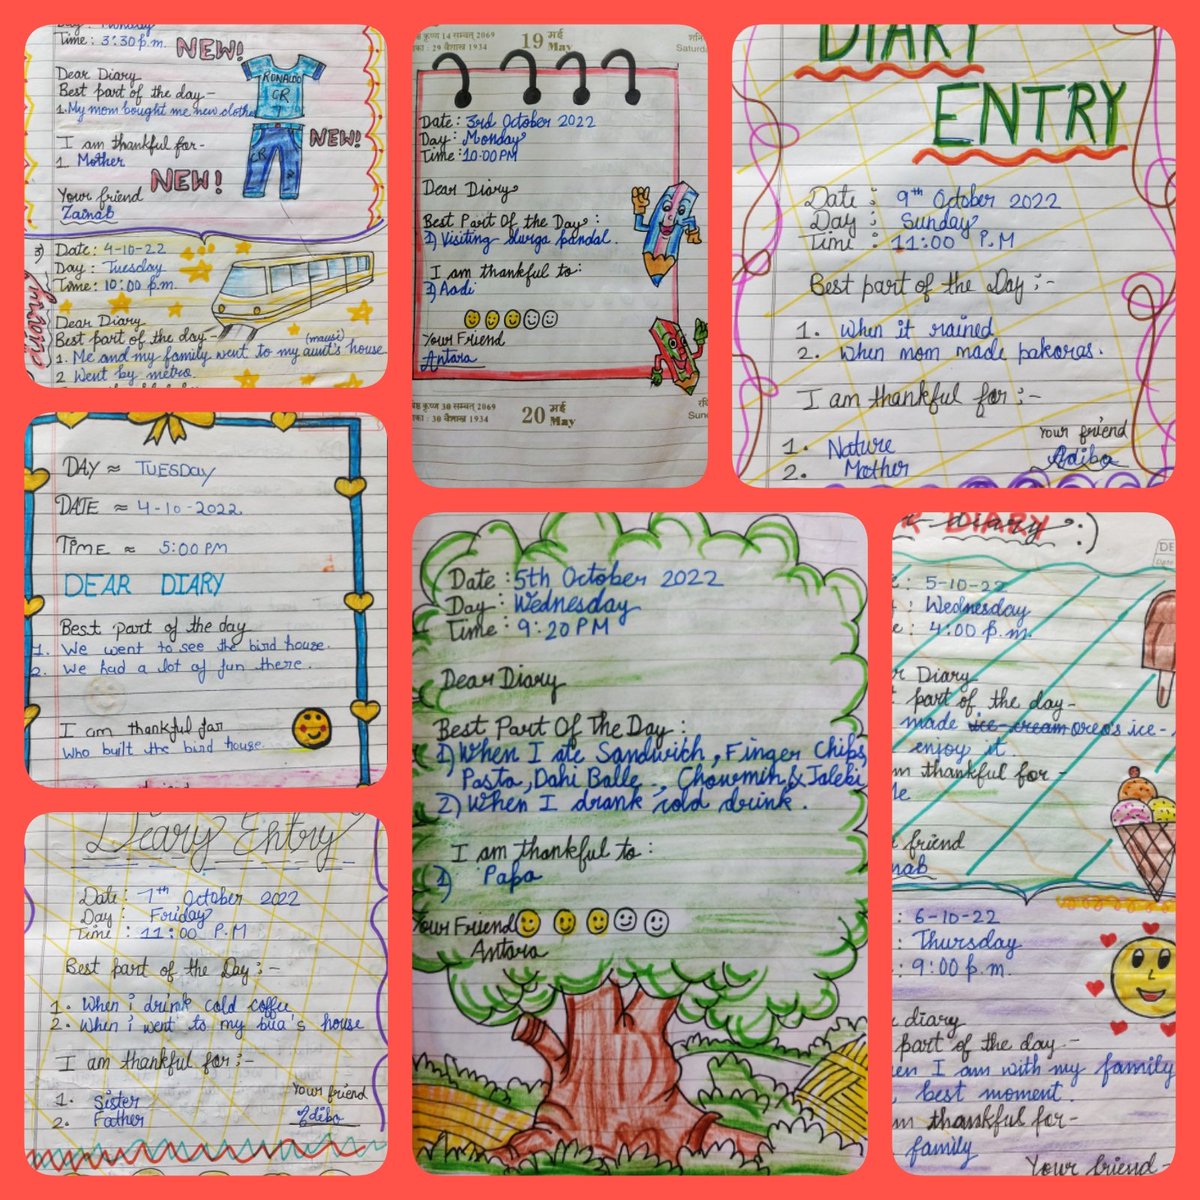 Day: Monday
Time: 3:30 p.m.
NEW!
Dear Diary
Best part of the day-
1. My mom bought me new clothes
RONALDO
CR
CR
NEW!
I am thankful for-
1. Mother
NEW!
Your friend
Zainab
3) Date: 4-10-22
Day: Tuesday
Time: 10:00 p.m.
diary
Dear Diary
Best part of the day-
(mausi)
1. Me and my family went to my aunt's house
2 Went by metro.
कृष्ण 14 सम्वत् 2069
29 वैशाख 1934
19 मई
May
शनि
Saturda
Date: 3rd October 2022
Day: Monday
Time: 10:00 PM
Dear Diary
Best Part Of the Day:
1) Visiting durga pandal.
I am thankful to:
1) Aadi
Your Friend
Antara
कृष्ण 30 सम्वत् 2069
30 वैशाख 1934
20 मई
May
Sun
DIARY
ENTRY
Date: 9th October 2022
Day: Sunday
Time: 11:00 P.M
Best part of the Day:-
1. When it rained
2. When mom made pakoras.
I am thankful for:-
1. Nature
2. Mother
Your friend
Adiba
DAY ≈ TUESDAY
DATE ≈ 4-10-2022.
TIME ≈ 5:00 PM
DEAR DIARY
Best part of the day
1. We went to see the bird house.
2. We had a lot of fun there.
I am thankful far
Who built the bird house.
Date: 5th October 2022
Day: Wednesday
Time: 9:20 PM
Dear Diary
Best Part Of The Day:
1) When I ate Sandwich, Finger Chips,
Pasta, Dahi Balle, Chowmin & Jalebi
2) When I drank cold drink.
I am thankful to:
1) Papa
Your Friend
Antara
DIARY
diary:)
: 5-10-22
: Wednesday
: 4:00 p.m.
Diary
part of the day-
made ice-cream oreo's ice-
enjoy it.
thankful for-
friend
6-10-22
: Thursday
: 9:00 p.m.
diary
part of the day.-
I am with my family
best moment.
thankful for-
family
Your friend-
Diary Entry
Date: 7th October 2022
Day: Friday
Time: 11:00 P.M
Best part of the Day:-
1. When i drink cold coffee
2. When i went to my bua's house
I am thankful for:-
1. Sister
2. Father
Your friend
Adiba